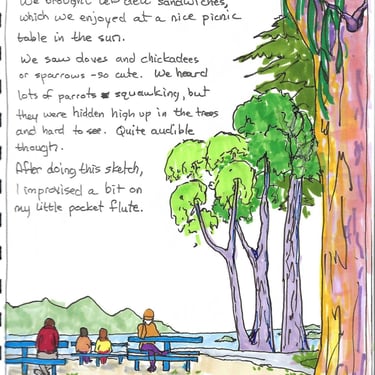 We brought New Deli sandwiches,
which we enjoyed at a nice picnic
table in the sun.
We saw doves and chickadees
or sparrows - so cute. We heard
lots of parrots squawking, but
they were hidden high up in the trees
and hard to see. Quite audible
though.
After doing this sketch,
I improvised a bit on
my little pocket flute.